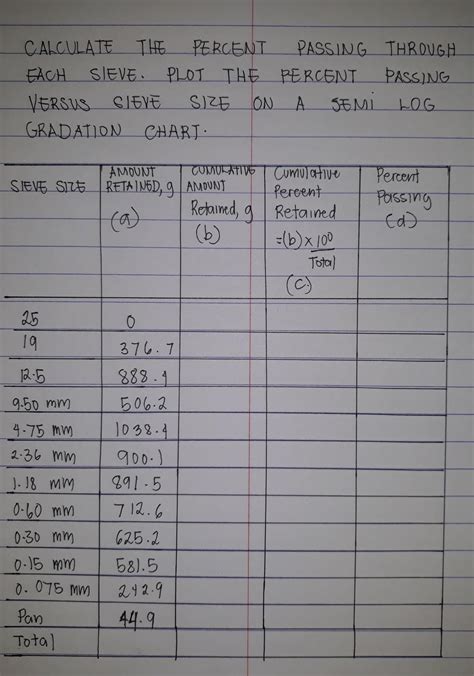 CALCULATE THE PERCENT PASSING THROUGH
EACH SIEVE. PLOT THE PERCENT PASSING
VERSUS SIEVE SIZE ON A SEMI LOG
GRADATION CHART.
SIEVE SIZE AMOUNT RETAINED, g (a) CUMULATIVE AMOUNT Retained, g (b) Cumulative Percent Retained =(b) x 100 / Total (c) Percent Passing (d)
25 0
19 376.7
12.5 888.4
9.50 mm 506.2
4.75 mm 1038.4
2.36 mm 900.1
1.18 mm 891.5
0.60 mm 712.6
0.30 mm 625.2
0.15 mm 581.5
0.075 mm 242.9
Pan 44.9
Total